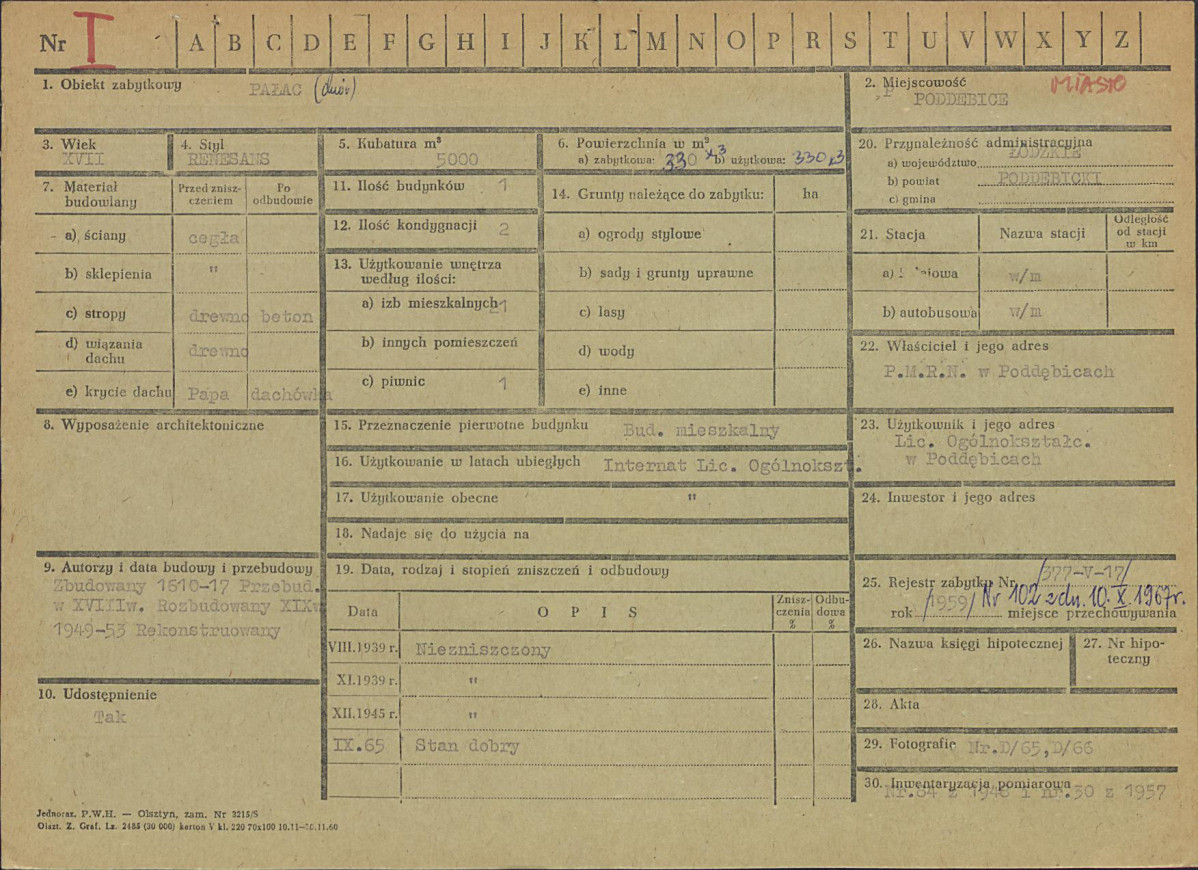 Nr I A B C D E F G H I J K L M N O P R S T U V W X Y Z
1. Obiekt zabytkowy PAŁAC (dwór)
2. Miejscowość MIASTO
PODDĘBICE
3. Wiek
XVII
4. Styl
RENESANS
5. Kubatura m³
5000
6. Powierzchnia w m²
a) zabytkowa: 330 x3 b) użytkowa: 330x3
20. Przynależność administracyjna
a) województwo ŁÓDZKIE
b) powiat PODDĘBICKI
c) gmina
7. Materiał budowlany
Przed zniszczeniem
Po odbudowie
a) ściany cegła
b) sklepienia "
c) stropy drewno beton
d) wiązania dachu drewno
e) krycie dachu Papa dachówka
11. Ilość budynków 1
12. Ilość kondygnacji 2
13. Użytkowanie wnętrza
według ilości:
a) izb mieszkalnych 21
b) innych pomieszczeń
c) piwnic 1
14. Grunty należące do zabytku: ha
a) ogrody stylowe
b) sady i grunty uprawne
c) lasy
d) wody
e) inne
21. Stacja Nazwa stacji
Odległość
od stacji
w km
a) w/m
b) autobusowa w/m
22. Właściciel i jego adres
P.M.R.N. w Poddębicach
8. Wyposażenie architektoniczne
15. Przeznaczenie pierwotne budynku Bud. mieszkalny
16. Użytkowanie w latach ubiegłych Internat Lic. Ogólnokszt.
17. Użytkowanie obecne "
18. Nadaje się do użycia na
23. Użytkownik i jego adres
Lic. Ogólnokształc.
w Poddębicach
24. Inwestor i jego adres
9. Autorzy i data budowy i przebudowy
Zbudowany 1610-17 Przebud.
w XVIIIw. Rozbudowany XIXw
1949-53 Rekonstruowany
10. Udostępnienie
Tak
19. Data, rodzaj i stopień zniszczeń i odbudowy
Data OPIS
Znisz-
czenia
%
Odbu-
dowa
%
VIII.1939 r. Niezniszczony
XI.1939 r. "
XII.1945 r. "
IX.65 Stan dobry
25. Rejestr zabytku Nr /377-V-17/
rok /1959/ Nr 102 z dn. 10.X.1967r.
miejsce przechowywania
26. Nazwa księgi hipotecznej
27. Nr hipo-
teczny
28. Akta
29. Fotografie Nr.D/65,D/66
30. Inwentaryzacja pomiarowa
Nr.84 z 1948 i nr.30 z 1957
Jednoraz. P.W.H. — Olsztyn, zam. Nr 3215/S
Olszt. Z. Graf. Lz. 2485 (30 000) karton V kl. 220 70x100